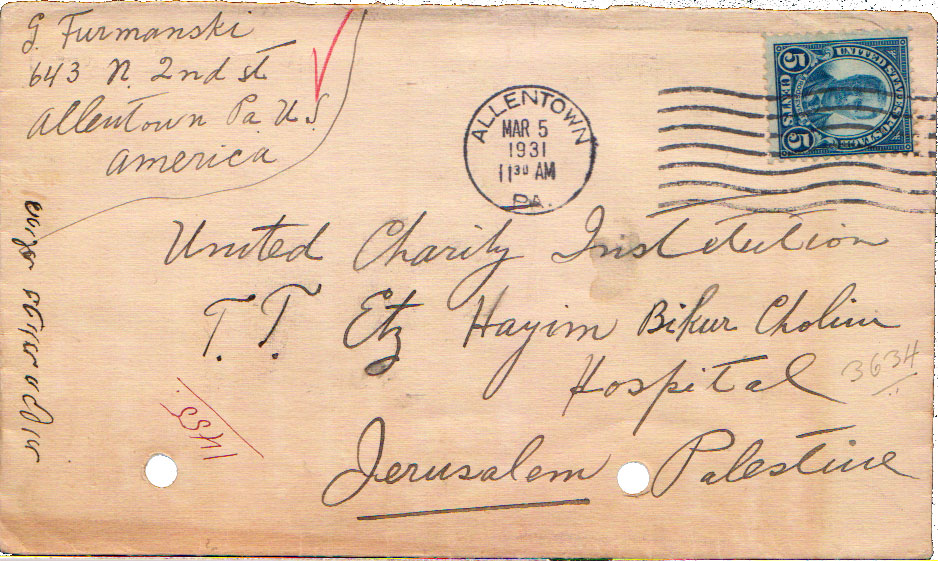 G. Furmanski
643 N. 2nd st
Allentown Pa. U.S
America
ALLENTOWN
MAR 5
1931
11 30 AM
PA.
UNITED STATES POSTAGE
5 CENTS 5
United Charity Institution
T. T. Etz Hayim Bikur Cholim
Hospital
3634
Jerusalem Palestine
1455